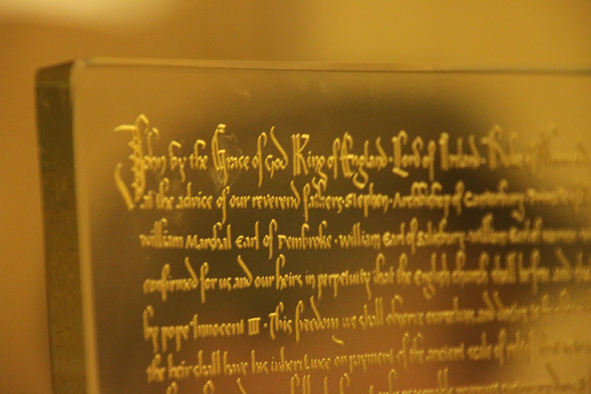 John by the Grace of God King of England · Lord of Ireland · Duke of
at the advice of our reverend fathers · Stephen · Archbishop of Canterbury
william Marshal Earl of Pembroke · william Earl of Salisbury · william Earl of
confirmed for us and our heirs in perpetuity that the English church shall be free and
by pope Innocent III · This freedom we shall observe ourselves and desire to be
the heir shall have his inheritance on payment of the ancient scale of relief